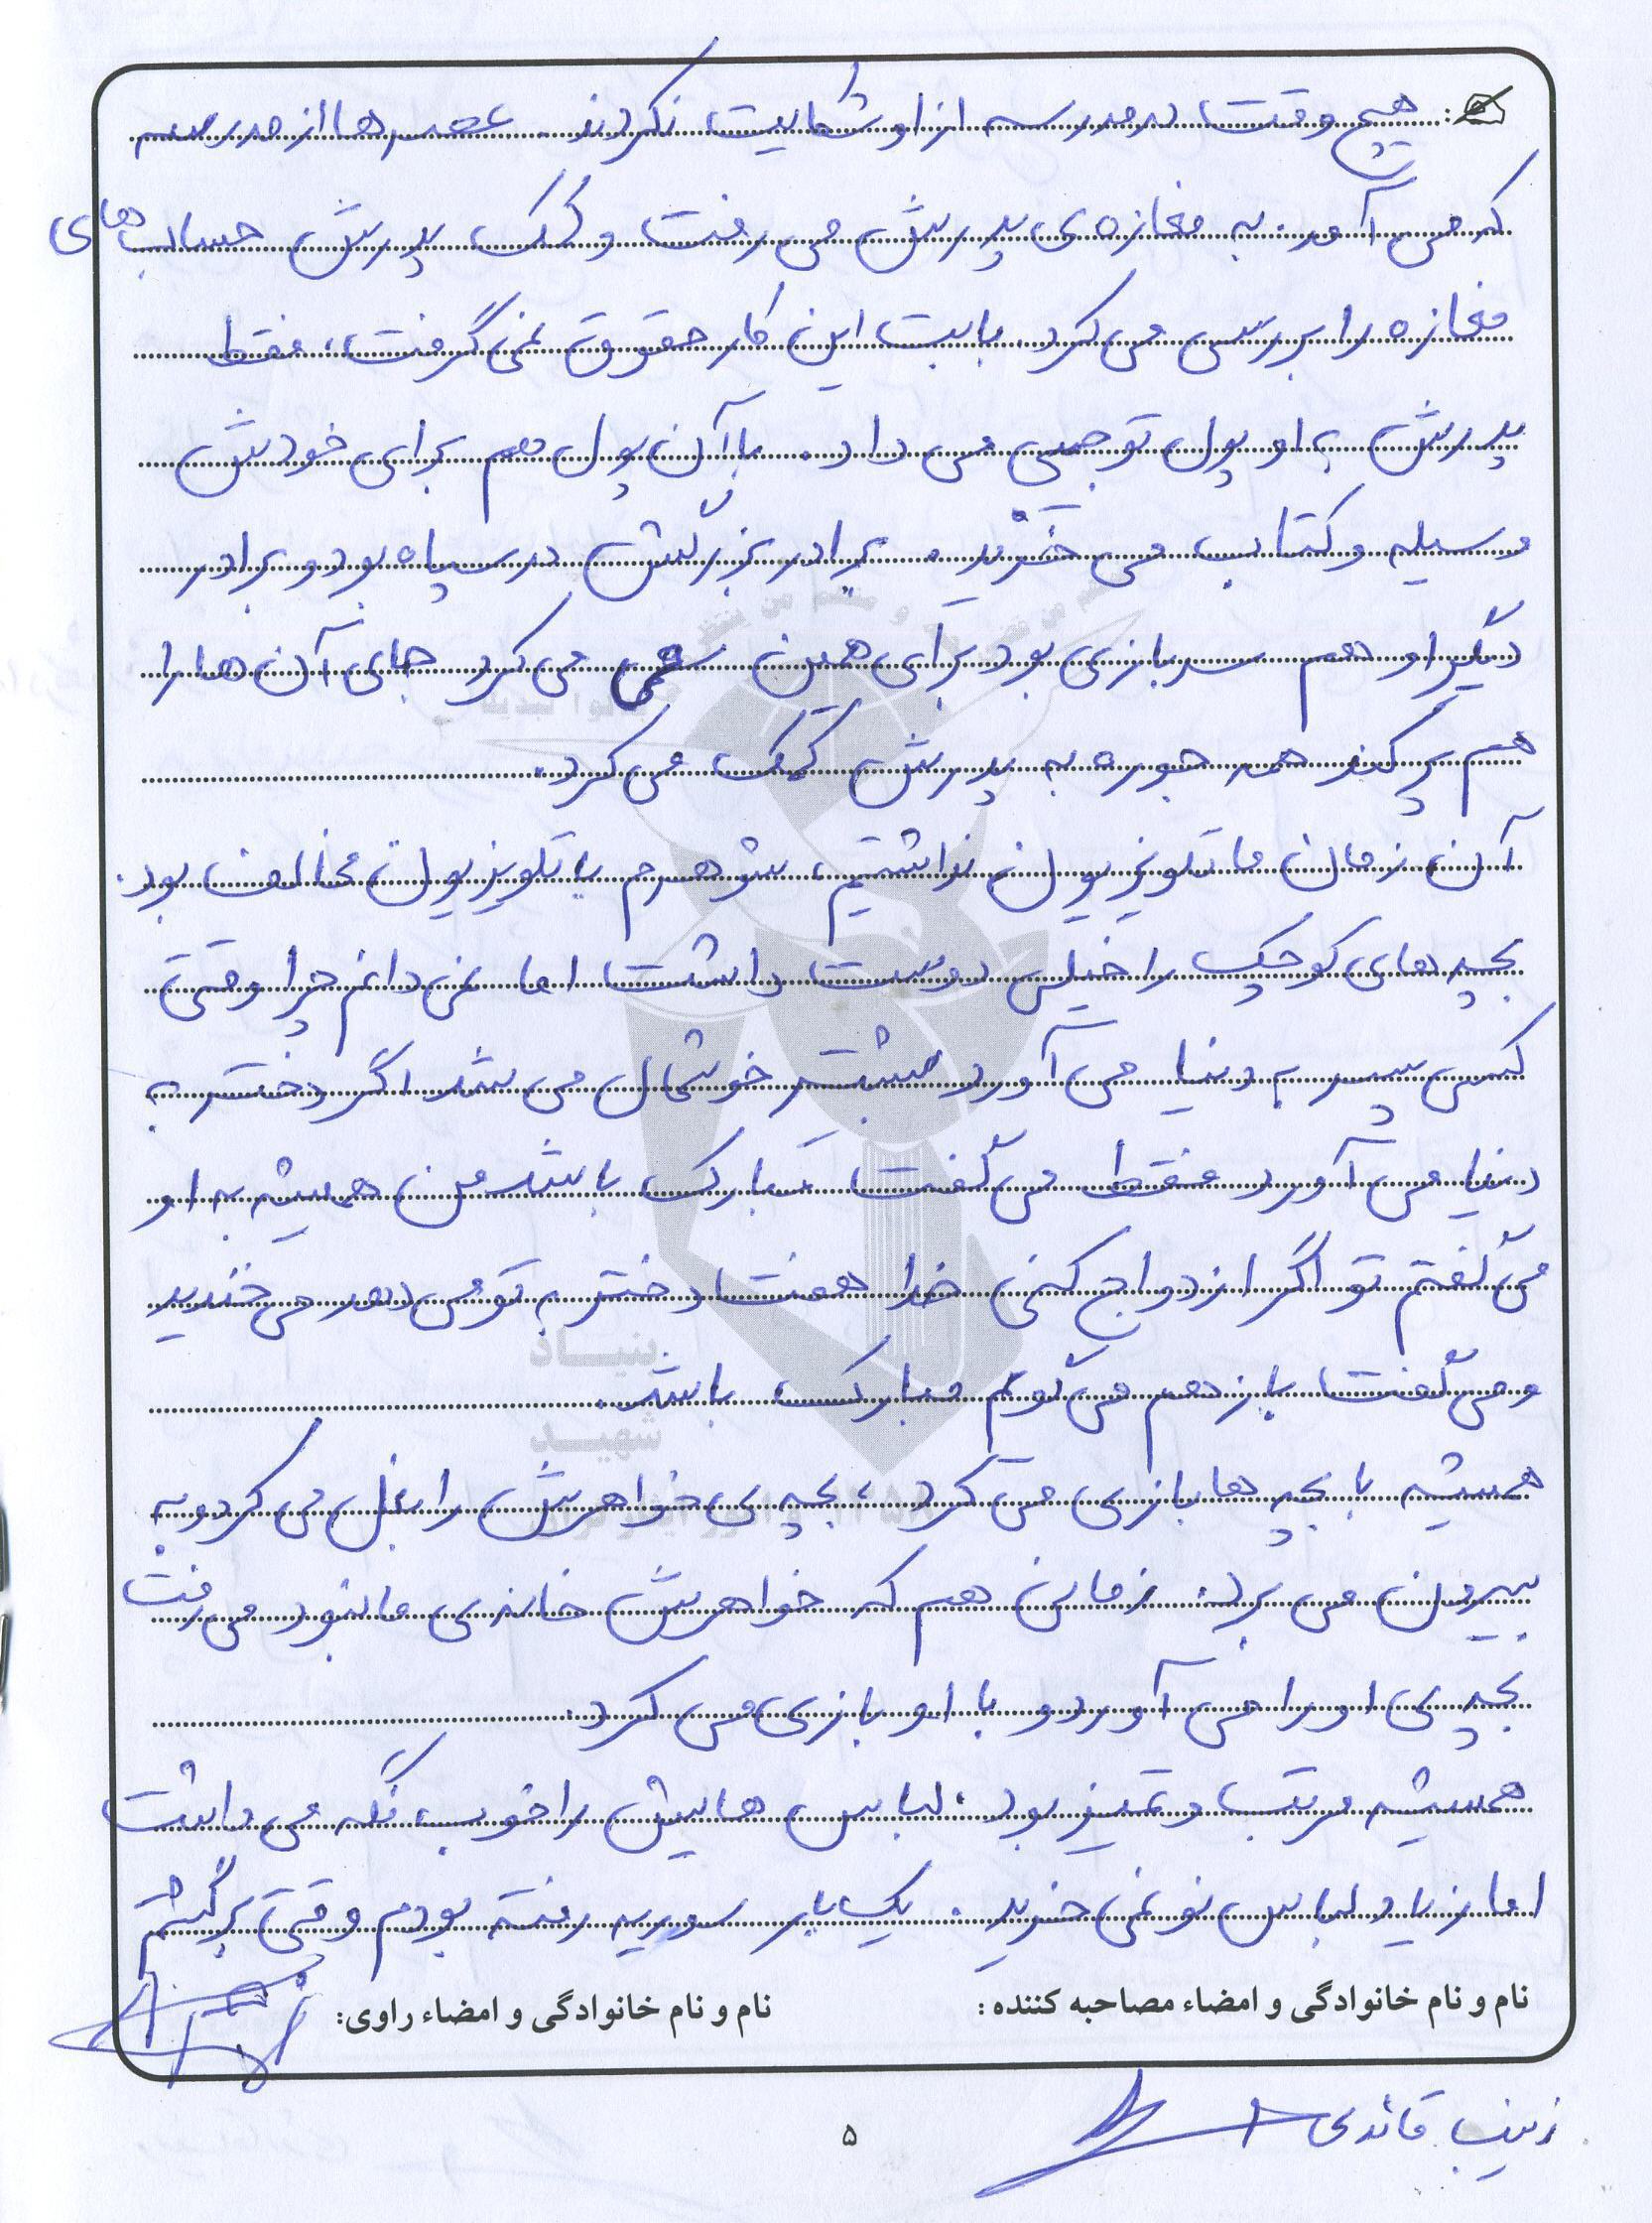 هیچ وقت در مدرسه از او شکایت نکردند. عصرها از مدرسه
که می آمد. به مغازه ی پدرش می رفت و کمک پدرش حساب های
مغازه را بررسی می کرد. بابت این کار حقوق نمی گرفت، فقط
پدرش به او پول توجیبی می داد. با آن پول هم برای خودش
وسیله و کتاب می خرید. برادر بزرگش در سپاه بود و برادر
دیگر او هم سربازی بود برای همین سعی می کرد جای آن ها را
هم پر کند همه جوره به پدرش کمک می کرد.
آن زمان ما تلویزیون نداشتیم، شوهرم با تلویزیون مخالف بود.
بچه های کوچک را خیلی دوست داشت اما نمی دانم چرا وقتی
کسی پسر به دنیا می آورد بیشتر خوشحال می شد اگر دختر به
دنیا می آورد فقط می گفت مبارک باشد من همیشه به او
می گفتم تو اگر ازدواج کنی خدا هفت دختر به تو می دهد می خندید
و می گفت باز هم می گویم مبارک باشد.
همیشه با بچه ها بازی می کرد، بچه ی خواهرش را بغل می کرد و به
بیرون می برد. زمانی هم که خواهرش خانه ی ما نبود می رفت
بچه ی او را می آورد و با او بازی می کرد.
همیشه مرتب و تمیز بود. لباس هایش را خوب نگه می داشت
اما زیاد لباس نو نمی خرید. یک بار سوریه رفته بودم وقتی برگشتم
نام و نام خانوادگی و امضاء مصاحبه کننده: نام و نام خانوادگی و امضاء راوی:
زینب قائدی
۵
بنیاد
شهید